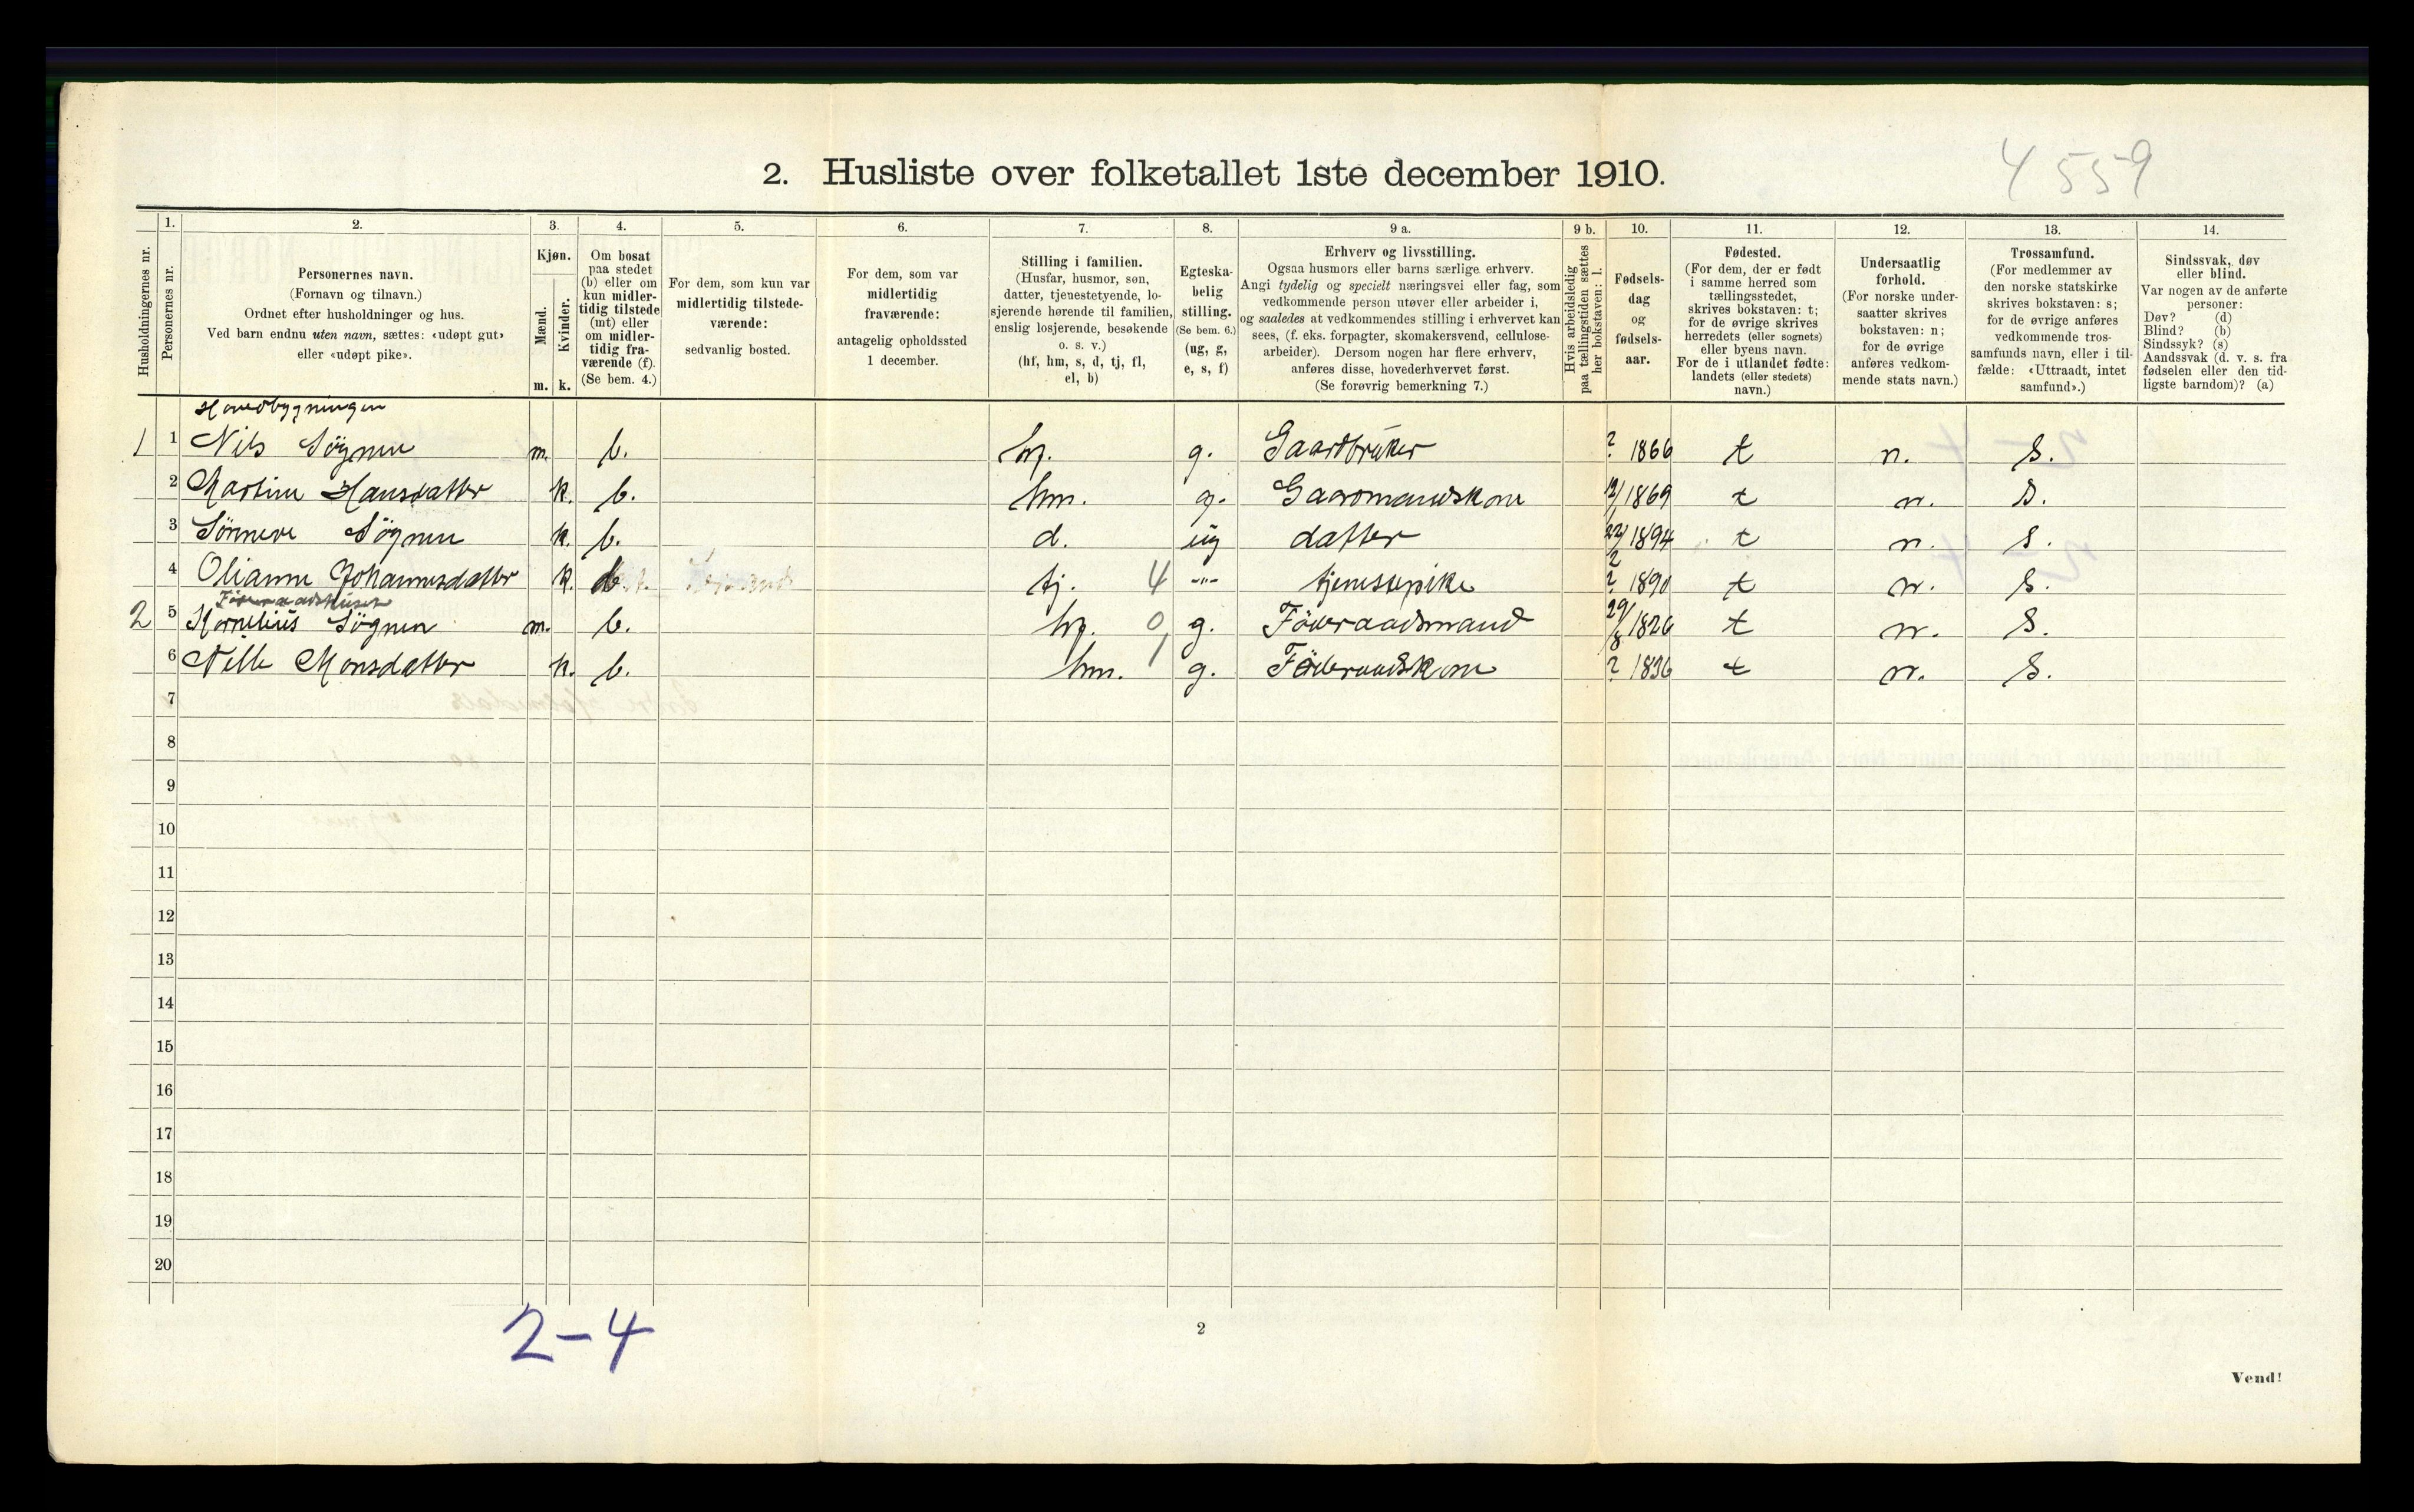 4 559
2. Husliste over folketallet 1ste december 1910.
Husholdningernes nr.
1.
Personernes nr.
2.
Personernes navn.
(Fornavn og tilnavn.)
Ordnet efter husholdninger og hus.
Ved barn endnu uten navn, sættes: «udøpt gut»
eller «udøpt pike».
3.
Kjøn.
Mænd.
Kvinder.
m. k.
4.
Om bosat
paa stedet
(b) eller om
kun midler-
tidig tilstede
(mt) eller
om midler-
tidig fra-
værende (f).
(Se bem. 4.)
5.
For dem, som kun var
midlertidig tilstede-
værende:
sedvanlig bosted.
6.
For dem, som var
midlertidig
fraværende:
antagelig opholdssted
1 december.
7.
Stilling i familien.
(Husfar, husmor, søn,
datter, tjenestetyende, lo-
sjerende hørende til familien,
enslig losjerende, besøkende
o. s. v.)
(hf, hm, s, d, tj, fl,
el, b)
8.
Egteska-
belig
stilling.
(Se bem. 6.)
(ug, g,
e, s, f)
9 a.
Erhverv og livsstilling.
Ogsaa husmors eller barns særlige erhverv.
Angi tydelig og specielt næringsvei eller fag, som
vedkommende person utøver eller arbeider i,
og saaledes at vedkommendes stilling i erhvervet kan
sees, (f. eks. forpagter, skomakersvend, cellulose-
arbeider). Dersom nogen har flere erhverv,
anføres disse, hovederhvervet først.
(Se forøvrig bemerkning 7.)
9 b.
Hvis arbeidsledig
paa tællingstiden sættes
her bokstaven: l.
10.
Fødsels-
dag
og
fødsels-
aar.
11.
Fødested.
(For dem, der er født
i samme herred som
tællingsstedet,
skrives bokstaven: t;
for de øvrige skrives
herredets (eller sognets)
eller byens navn.
For de i utlandet fødte:
landets (eller stedets)
navn.)
12.
Undersaatlig
forhold.
(For norske under-
saatter skrives
bokstaven: n;
for de øvrige
anføres vedkom-
mende stats navn.)
13.
Trossamfund.
(For medlemmer av
den norske statskirke
skrives bokstaven: s;
for de øvrige anføres
vedkommende tros-
samfunds navn, eller i til-
fælde: «Uttraadt, intet
samfund».)
14.
Sindssvak, døv
eller blind.
Var nogen av de anførte
personer:
Døv? (d)
Blind? (b)
Sindssyk? (s)
Aandssvak (d. v. s. fra
fødselen eller den tid-
ligste barndom)? (a)
Hovedbygningen
1 1 Nils Søgnen m. b. hf. g. Gaardbruker ? 1866 t n. s.
2 Martine Hansdatter k. b. hm. g. Gaardmandskone 1869 t n. s.
3 Sønneve Søgnen k. b. d. ug datter 22/2 1894 t n. s.
4 Olianne Johannesdatter k. b. tj. 4 -"- tjenestepike ? 1890 t n. s.
Föderaadshuset
2 5 Kornelius Søgnen m. b. hf. 0 g. Föderaadsmand 29/8 1826 t n. s.
6 Nille Monsdatter k. b. hm. 1 g. Föderaadskone ? 1836 t n. s.
7
8
9
10
11
12
13
14
15
16
17
18
19
20
2-4
2
Vend!